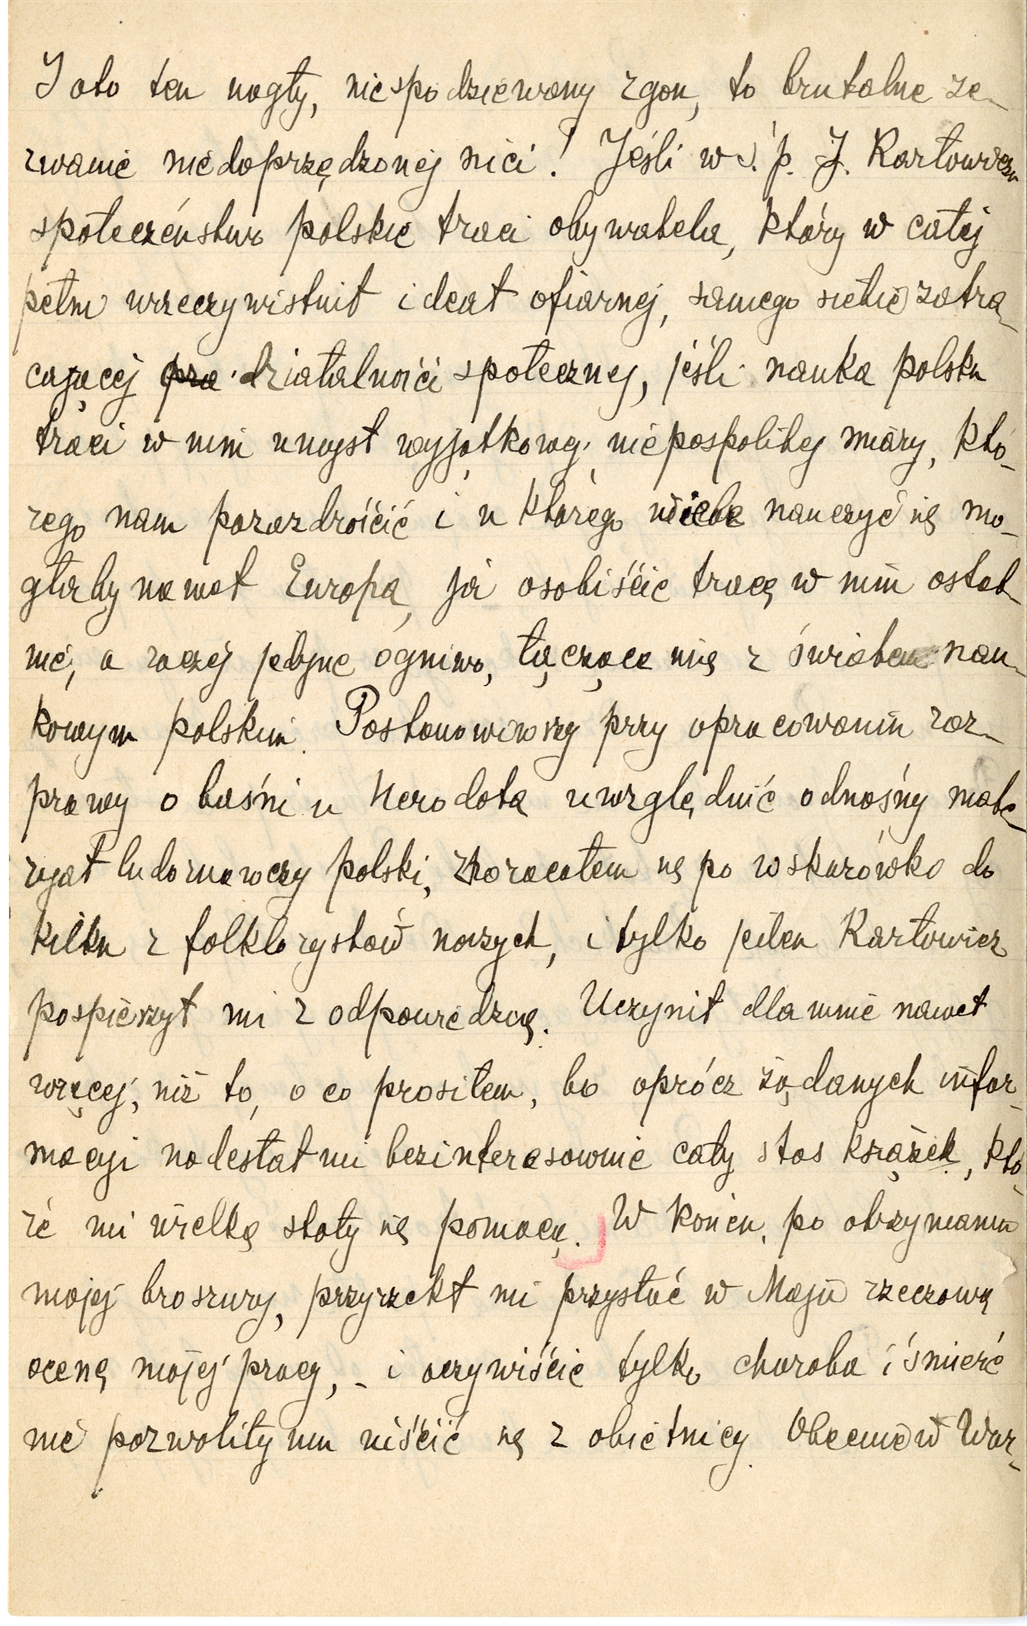 I oto ten nagły, niespodziewany zgon, to brutalne ze-
rwanie niedoprzędzonej nici! Jeśli w ś. p. J. Karłowiczu
społeczeństwo polskie traci obywatela, który w całej
pełni urzeczywistnił ideał ofiarnej, samego siebie zatra-
cającej pra działalności społecznej, jeśli nauka polska
traci w nim umysł wyjątkowej, niepospolitej miary, któ-
rego nam pozazdrościć i u którego wiele nauczyć się mo-
głaby nawet Europa, ja osobiście tracę w nim ostat-
nie, a raczej jedyne ogniwo, łączące mię z światem nau-
kowym polskim. Postanowiwszy przy opracowaniu roz-
prawy o baśni u Herodota uwzględnić odnośny mate-
ryał ludoznawczy polski, zwracałem się po wskazówki do
kilku z folklorystów naszych, i tylko jeden Karłowicz
pospieszył mi z odpowiedzią. Uczynił dla mnie nawet
więcej, niż to, o co prosiłem, bo oprócz żądanych infor-
macyi nadesłał mi bezinteresownie cały stos książek, któ-
re mi wielką stały się pomocą. W końcu, po otrzymaniu
mojej broszury, przyrzekł mi przysłać w Maju rzeczową
ocenę mojej pracy, - i oczywiście tylko choroba i śmierć
nie pozwoliły mu uiścić się z obietnicy. Obecnie w War-